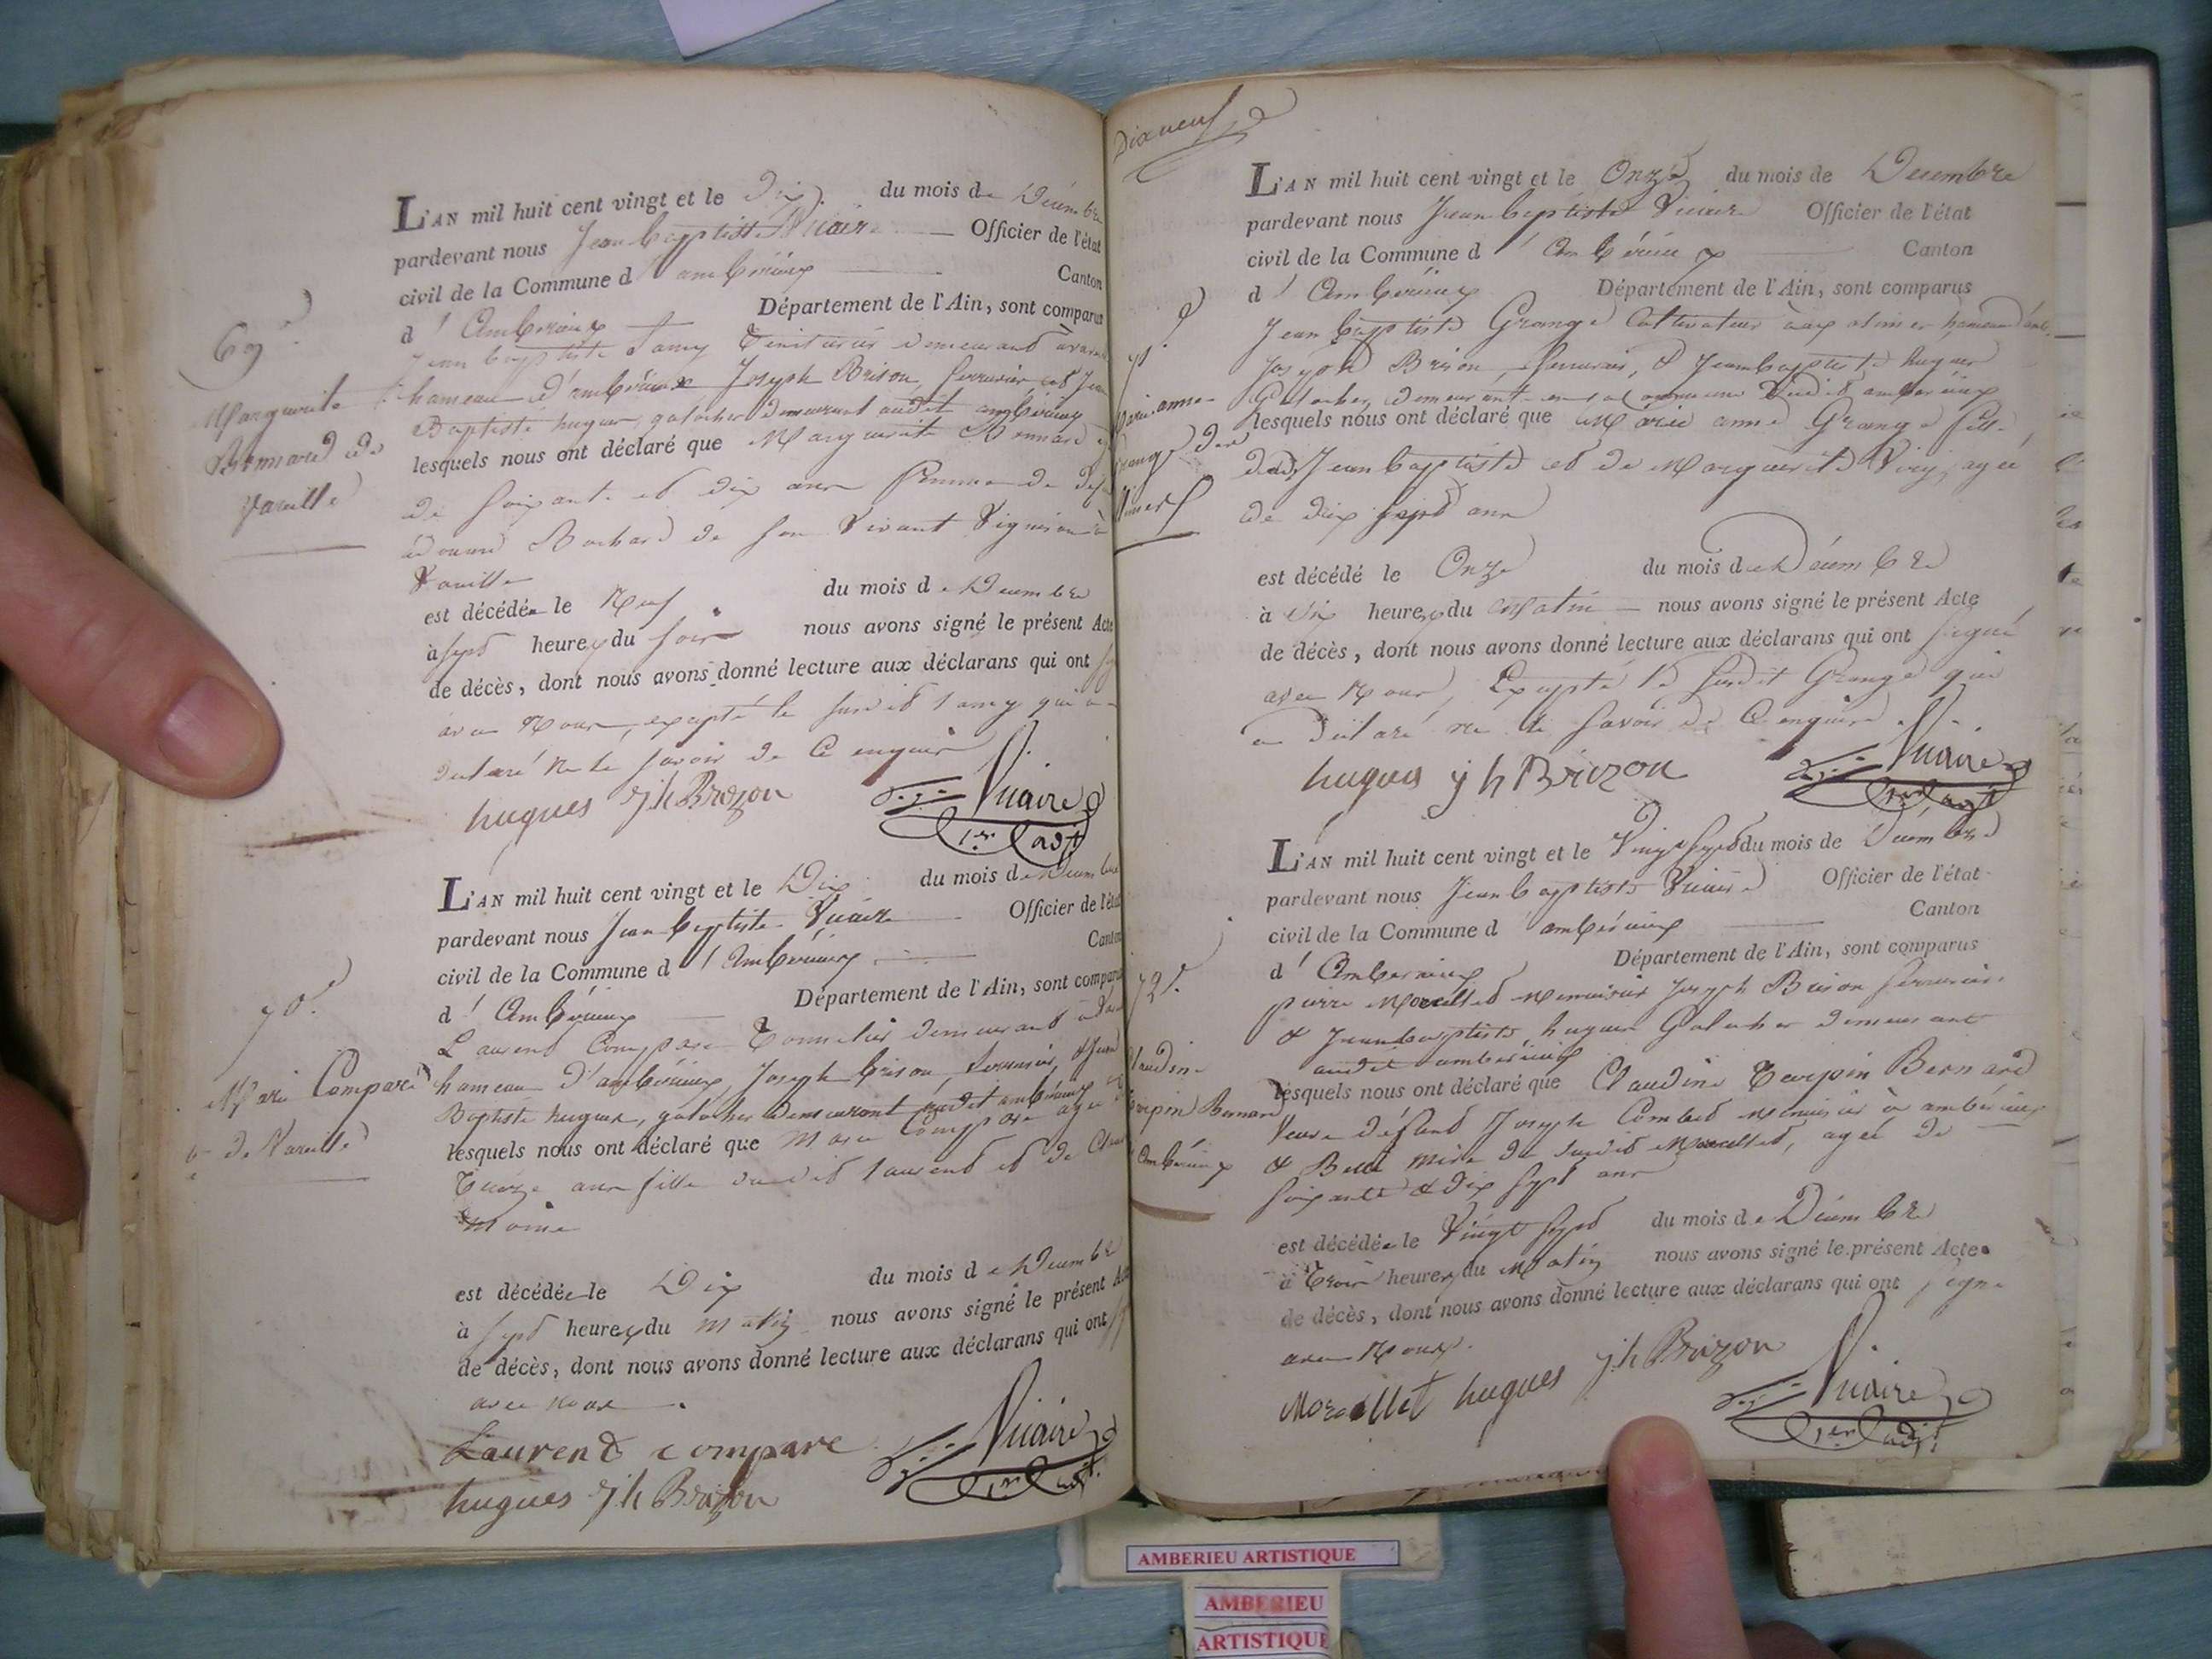 69e
Marguerite
Bonnard de
Vareille
L'AN mil huit cent vingt et le Dix du mois de Décembre
pardevant nous Jean baptiste Vicaire Officier de l'état
civil de la Commune d ambérieux Canton
d' Ambérieux Département de l'Ain, sont comparus
Jean baptiste Lamy demeurant à
hameau d'ambérieux Joseph Brison, serrurier et Jean
Baptiste hugues, galocher demeurant audit ambérieux
lesquels nous ont déclaré que Marguerite Bonnard
de soixante et dix ans femme de
Bochard de son Vivant Vigneron à
Vareille
est décédée le Neuf du mois de Décembre
à sept heures du soir nous avons signé le présent Acte
de décès, dont nous avons donné lecture aux déclarans qui ont
avec Nous, excepté le susdit Lamy qui a
déclaré ne le savoir de ce enquis
hugues jh Brizon Vicaire
1er adjt
70e
Marie Comparé
de Vareille
L'AN mil huit cent vingt et le Dix du mois de Décembre
pardevant nous Jean baptiste Vicaire Officier de l'état
civil de la Commune d' Ambérieux Canton
d' Ambérieux Département de l'Ain, sont comparus
Laurent Compare Tonnelier demeurant à
hameau d'ambérieux, Joseph brison, serrurier, & Jean
Baptiste hugues, galocher demeurant audit ambérieux
lesquels nous ont déclaré que Marie Compare agée
Treize ans fille dudit Laurent et de
moine
est décédée le Dix du mois de Décembre
à sept heures du matin nous avons signé le présent Acte
de décès, dont nous avons donné lecture aux déclarans qui ont
avec nous
Laurend compare Vicaire
hugues jh Brizon 1er adjt.
Dixneuf
71e
Marie anne
Grange des
L'AN mil huit cent vingt et le Onze du mois de Décembre
pardevant nous Jean baptiste Vicaire Officier de l'état
civil de la Commune d' Ambérieux Canton
d' Ambérieux Département de l'Ain, sont comparus
Jean baptiste Grange Cultivateur aux hameau
Joseph Brison, serrurier, & Jean baptiste hugues
Galocher, demeurant en la commune dudit ambérieux
lesquels nous ont déclaré que Marie anne Grange fille
dudit Jean baptiste et de Marguerite agée
de dix sept ans
est décédé le Onze du mois de Décembre
à Six heures du Matin nous avons signé le présent Acte
de décès, dont nous avons donné lecture aux déclarans qui ont signé
avec Nous, Excepté le susdit Grange qui
a déclaré ne le savoir de ce enquis
hugues jh Brizon Vicaire
1er adjt
72e.
Claudine
Turpin Bernard
ambérieux
L'AN mil huit cent vingt et le Vingt sept du mois de Décembre
pardevant nous Jean baptiste Vicaire Officier de l'état
civil de la Commune d ambérieux Canton
d' Ambérieux Département de l'Ain, sont comparus
pierre Morcellet Menuisier Joseph Brison serrurier
& Jean baptiste hugues Galocher demeurant
audit ambérieux
lesquels nous ont déclaré que Claudine Turpin Bernard
Veuve défunt Joseph Combet menuisier à ambérieux
& Belle mère du susdit Morcellet, agée de
soixante & dix sept ans
est décédée le Vingt sept du mois de Décembre
à Trois heures du Matin nous avons signé le présent Acte
de décès, dont nous avons donné lecture aux déclarans qui ont signé
avec Nous.
Morcellet hugues jh Brizon Vicaire
1er adjt
AMBERIEU ARTISTIQUE
AMBERIEU
ARTISTIQUE